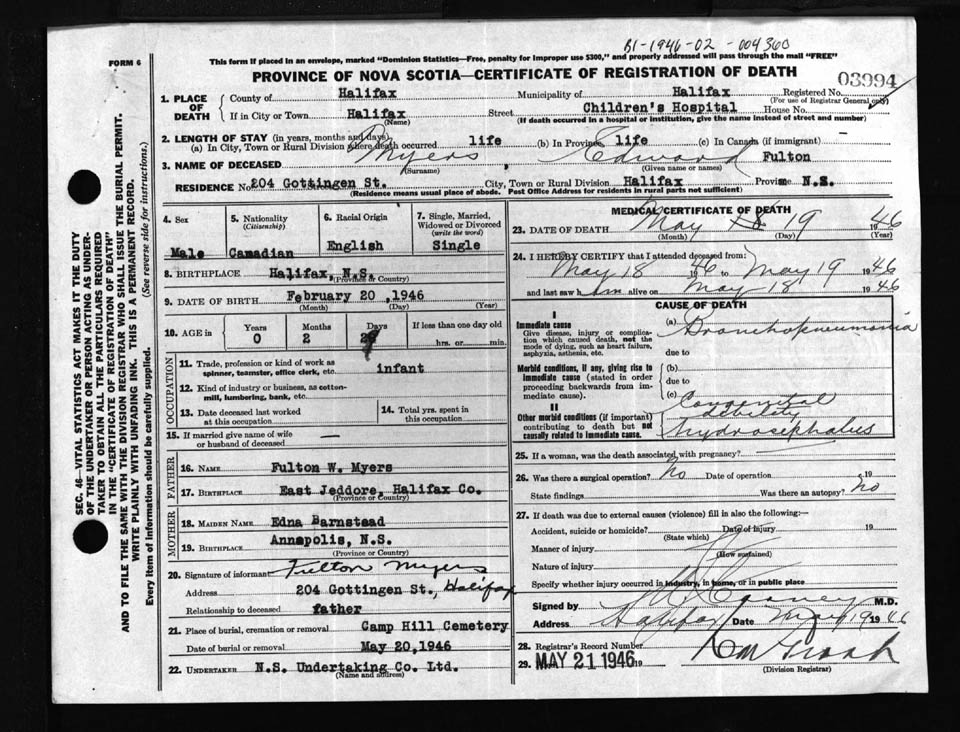 B1-1946-02-004360
FORM 6
This form if placed in an envelope, marked "Dominion Statistics—Free, penalty for improper use $300," and properly addressed will pass through the mail "FREE"
PROVINCE OF NOVA SCOTIA—CERTIFICATE OF REGISTRATION OF DEATH
03994
1. PLACE OF DEATH County of Halifax Municipality of Halifax Registered No.
(For use of Registrar General only)
If in City or Town Halifax Street Children's Hospital House No.
(Name) (If death occurred in a hospital or institution, give the name instead of street and number)
2. LENGTH OF STAY (in years, months and days)
(a) In City, Town or Rural Division where death occurred life (b) In Province life (c) In Canada (if immigrant)
3. NAME OF DECEASED Myers, Edward Fulton
(Surname) (Given name or names)
RESIDENCE No. 204 Gottingen St. City, Town or Rural Division Halifax Province N.S.
(Residence means usual place of abode. Post Office Address for residents in rural parts not sufficient)
4. Sex Male
5. Nationality (Citizenship) Canadian
6. Racial Origin English
7. Single, Married, Widowed or Divorced (write the word) Single
8. BIRTHPLACE Halifax, N.S.
(Province or Country)
9. DATE OF BIRTH February 20, 1946
(Month) (Day) (Year)
10. AGE in Years Months Days If less than one day old
0 2 hrs. or min.
OCCUPATION
11. Trade, profession or kind of work as spinner, teamster, office clerk, etc. infant
12. Kind of industry or business, as cotton-mill, lumbering, bank, etc.
13. Date deceased last worked at this occupation
14. Total yrs. spent in this occupation
15. If married give name of wife or husband of deceased —
FATHER
16. NAME Fulton W. Myers
17. BIRTHPLACE East Jeddore, Halifax Co.
(Province or Country)
MOTHER
18. MAIDEN NAME Edna Barnstead
19. BIRTHPLACE Annapolis, N.S.
(Province or Country)
20. Signature of informant Fulton Myers
Address 204 Gottingen St., Halifax
Relationship to deceased father
21. Place of burial, cremation or removal Camp Hill Cemetery
Date of burial or removal May 20, 1946
22. UNDERTAKER N.S. Undertaking Co. Ltd.
(Name and address)
MEDICAL CERTIFICATE OF DEATH
23. DATE OF DEATH May 19 1946
(Month) (Day) (Year)
24. I HEREBY CERTIFY that I attended deceased from:
May 18 1946 to May 19 1946
and last saw him alive on May 18 1946
CAUSE OF DEATH
I
Immediate cause
Give disease, injury or complication which caused death, not the mode of dying, such as heart failure, asphyxia, asthenia, etc.
(a) Bronchopneumonia
due to
Morbid conditions, if any, giving rise to immediate cause (stated in order proceeding backwards from immediate cause).
(b)
due to
(c) Congenital
II
Other morbid conditions (if important) contributing to death but not causally related to immediate cause.
debility
hydrocephalus
25. If a woman, was the death associated with pregnancy?
26. Was there a surgical operation? No Date of operation 19
State findings Was there an autopsy? No
27. If death was due to external causes (violence) fill in also the following:—
Accident, suicide or homicide? Date of injury 19
(State which)
Manner of injury
(How sustained)
Nature of injury
Specify whether injury occurred in industry, in home, or in public place
Signed by M.D.
Address Halifax Date May 19 1946
28. Registrar's Record Number
29. MAY 21 1946 19
(Division Registrar)
SEC. 46—VITAL STATISTICS ACT MAKES IT THE DUTY
OF THE UNDERTAKER OR PERSON ACTING AS UNDER-
TAKER TO OBTAIN ALL THE PARTICULARS REQUIRED
IN THE "CERTIFICATE OF REGISTRATION OF DEATH"
AND TO FILE THE SAME WITH THE DIVISION REGISTRAR WHO SHALL ISSUE THE BURIAL PERMIT.
WRITE PLAINLY WITH UNFADING INK. THIS IS A PERMANENT RECORD.
Every item of information should be carefully supplied. (See reverse side for instructions.)